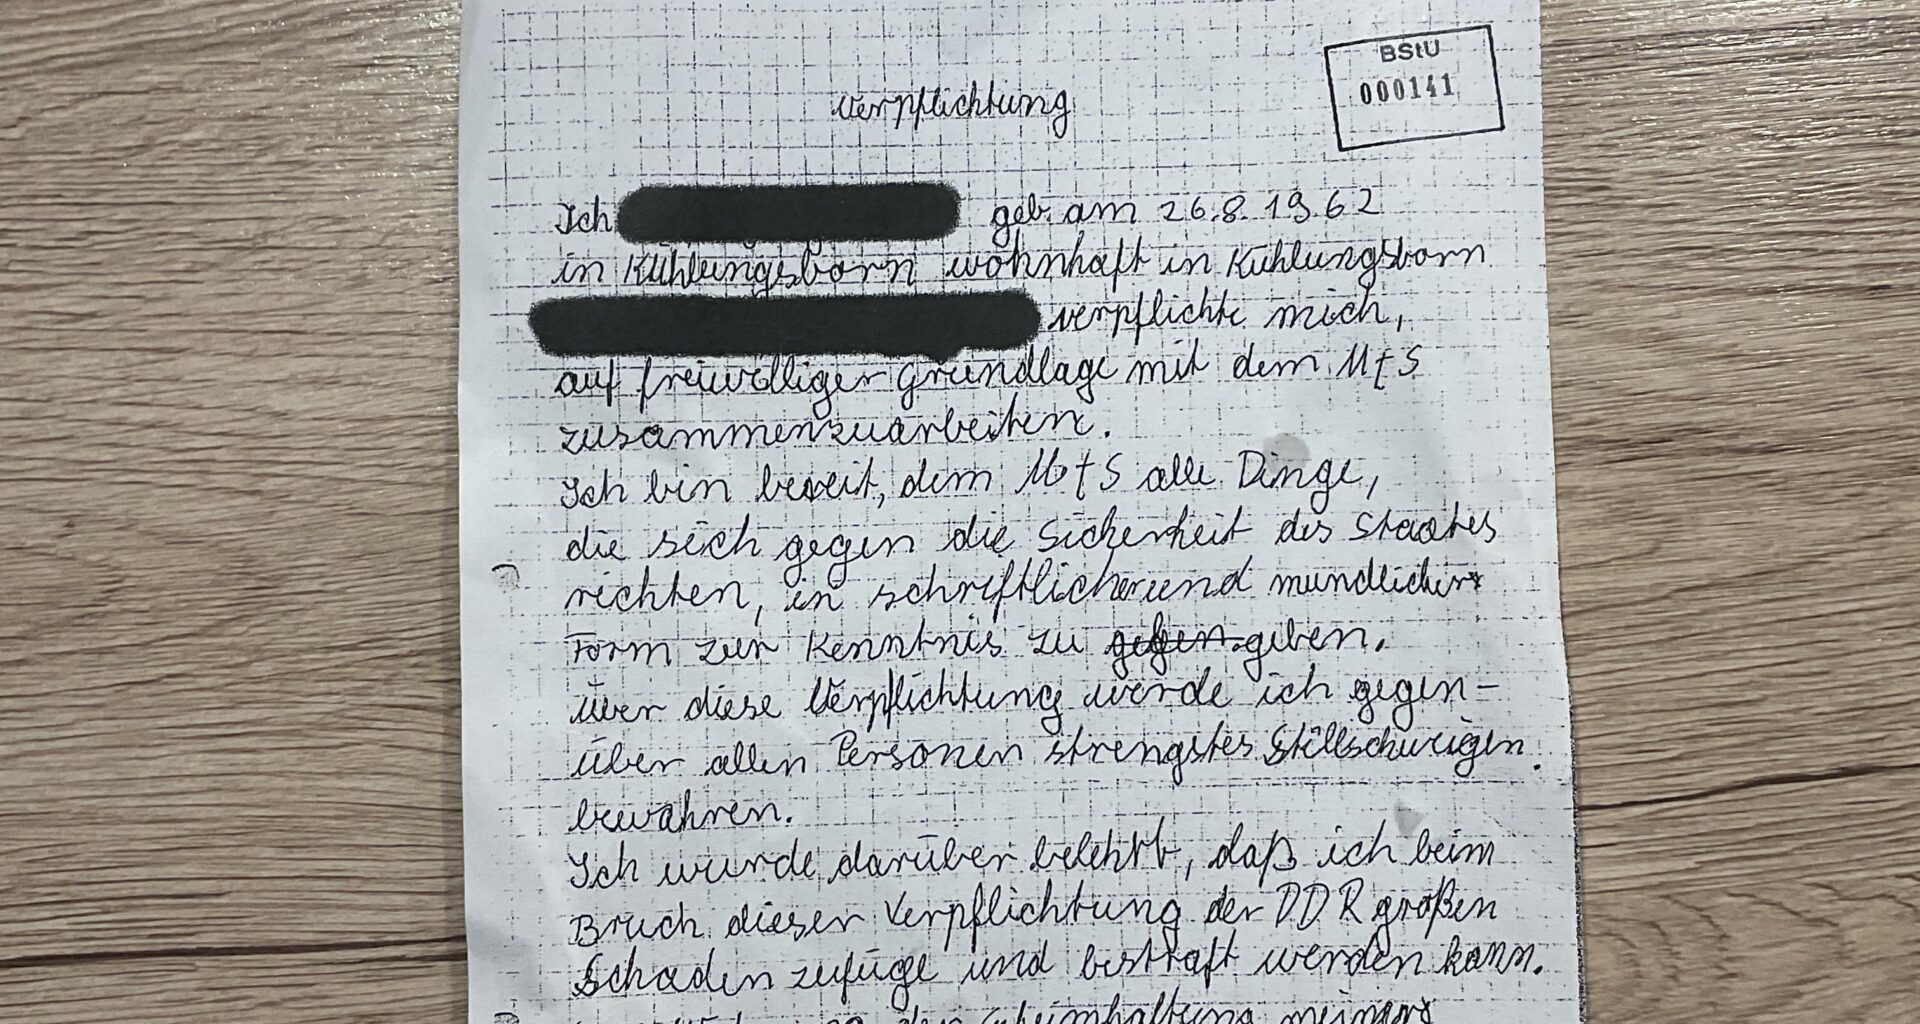 BStU
000141
Verpflichtung
Ich geb. am 26.8.1962
in Kühlungsborn wohnhaft in Kühlungsborn
verpflichte mich,
auf freiwilliger Grundlage mit dem MfS
zusammenzuarbeiten.
Ich bin bereit, dem MfS alle Dinge,
die sich gegen die Sicherheit des Staates
richten, in schriftlicher und mündlicher
Form zur Kenntnis zu geben.
über diese Verpflichtung werde ich gegen-
über allen Personen strengstes Stillschweigen
bewahren.
Ich wurde darüber belehrt, daß ich beim
Bruch dieser Verpflichtung der DDR großen
Schaden zufüge und bestraft werden kann.
der Geheimhaltung meiner